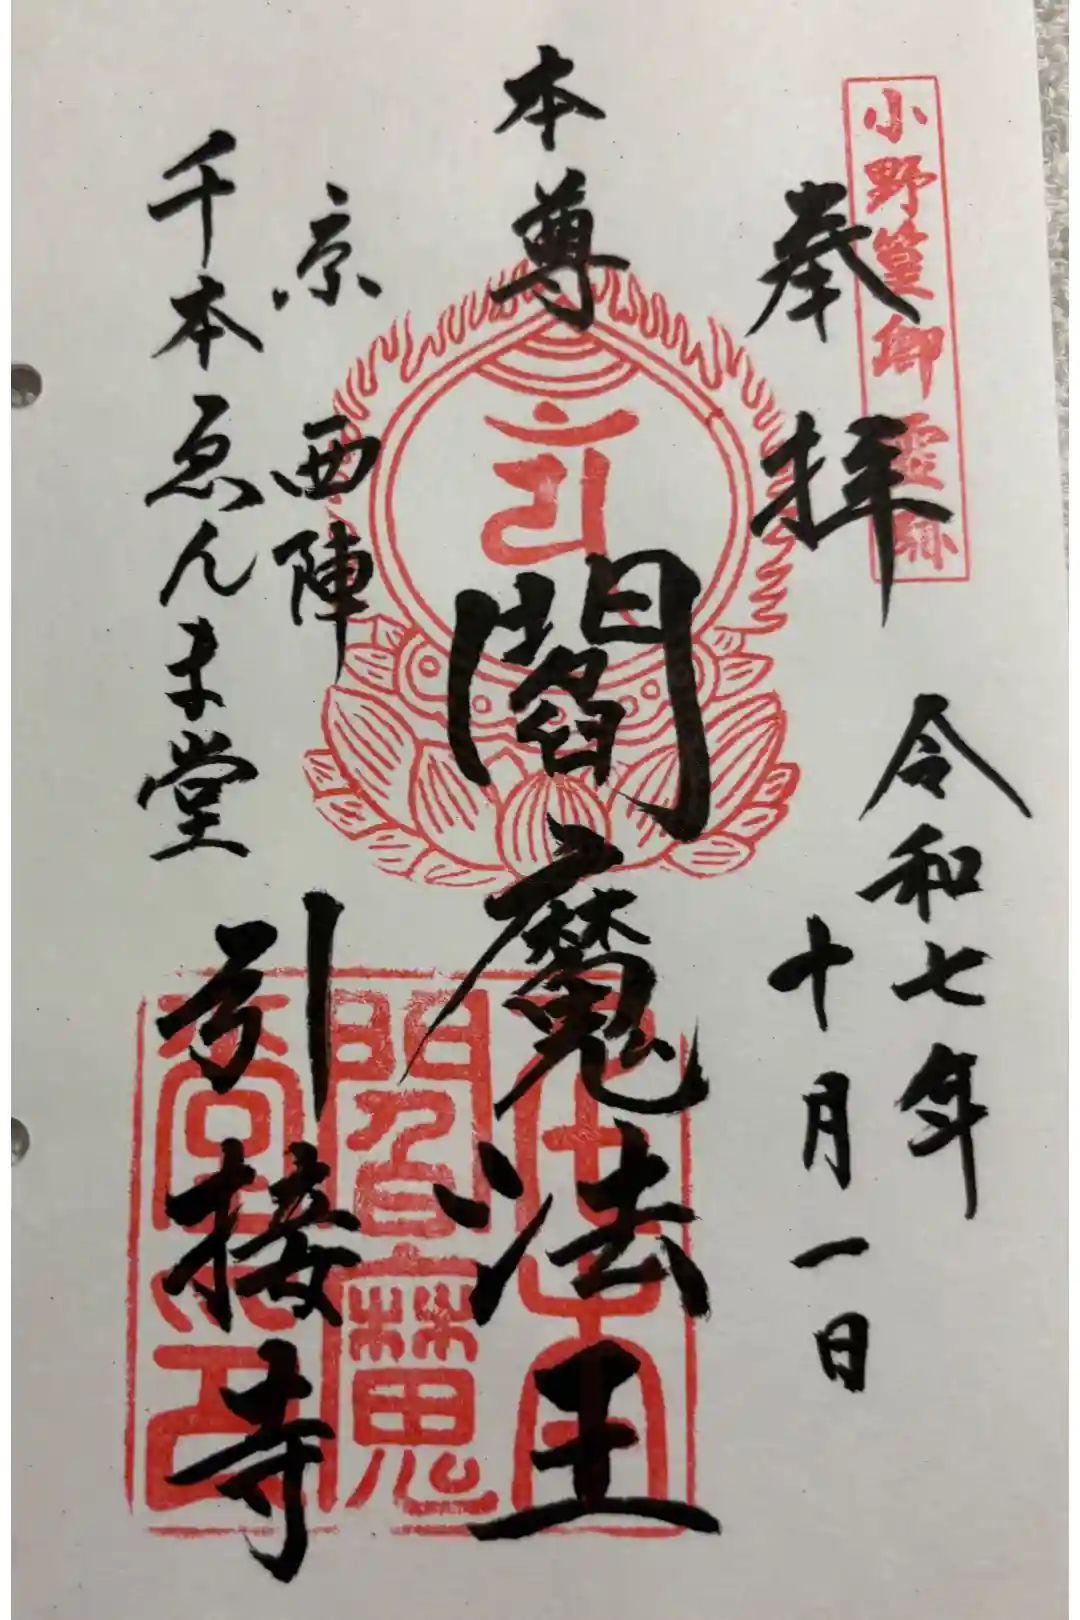 小野篁卿霊跡
奉拝
令和七年
十月一日
本尊
閻魔法王
京 西陣
千本ゑんま堂
引接寺